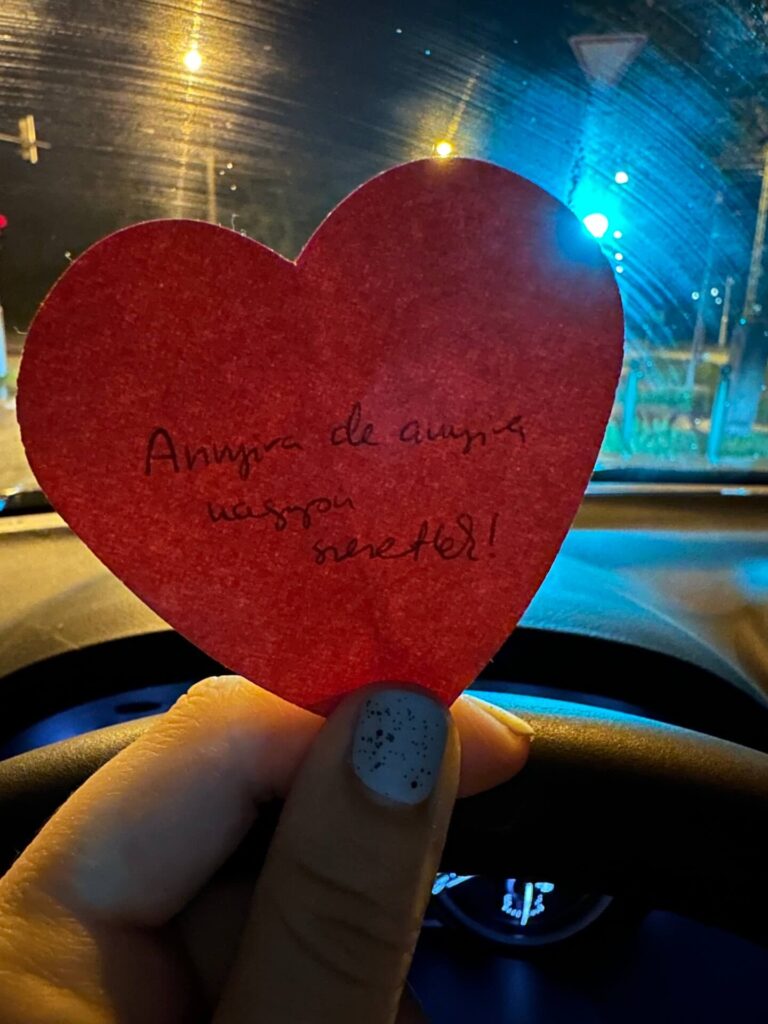 Annyira de annyira
nagyon
szeretlek!